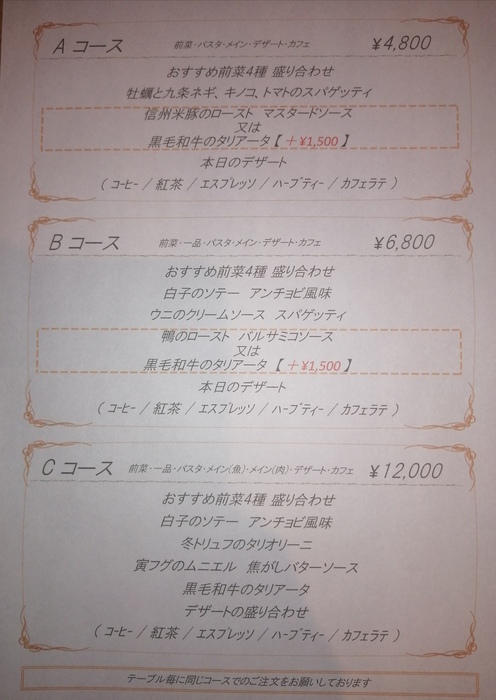 A コース 前菜・パスタ・メイン・デザート・カフェ ¥4,800
おすすめ前菜4種 盛り合わせ
牡蠣と九条ネギ、キノコ、トマトのスパゲッティ
信州米豚のロースト マスタードソース
又は
黒毛和牛のタリアータ【 ＋¥1,500 】
本日のデザート
( コーヒー / 紅茶 / エスプレッソ / ハーブティー / カフェラテ )
B コース 前菜・一品・パスタ・メイン・デザート・カフェ ¥6,800
おすすめ前菜4種 盛り合わせ
白子のソテー アンチョビ風味
ウニのクリームソース スパゲッティ
鴨のロースト バルサミコソース
又は
黒毛和牛のタリアータ【 ＋¥1,500 】
本日のデザート
( コーヒー / 紅茶 / エスプレッソ / ハーブティー / カフェラテ )
C コース 前菜・一品・パスタ・メイン(魚)・メイン(肉)・デザート・カフェ ¥12,000
おすすめ前菜4種 盛り合わせ
白子のソテー アンチョビ風味
冬トリュフのタリオリーニ
寅フグのムニエル 焦がしバターソース
黒毛和牛のタリアータ
デザートの盛り合わせ
( コーヒー / 紅茶 / エスプレッソ / ハーブティー / カフェラテ )
テーブル毎に同じコースでのご注文をお願いしております